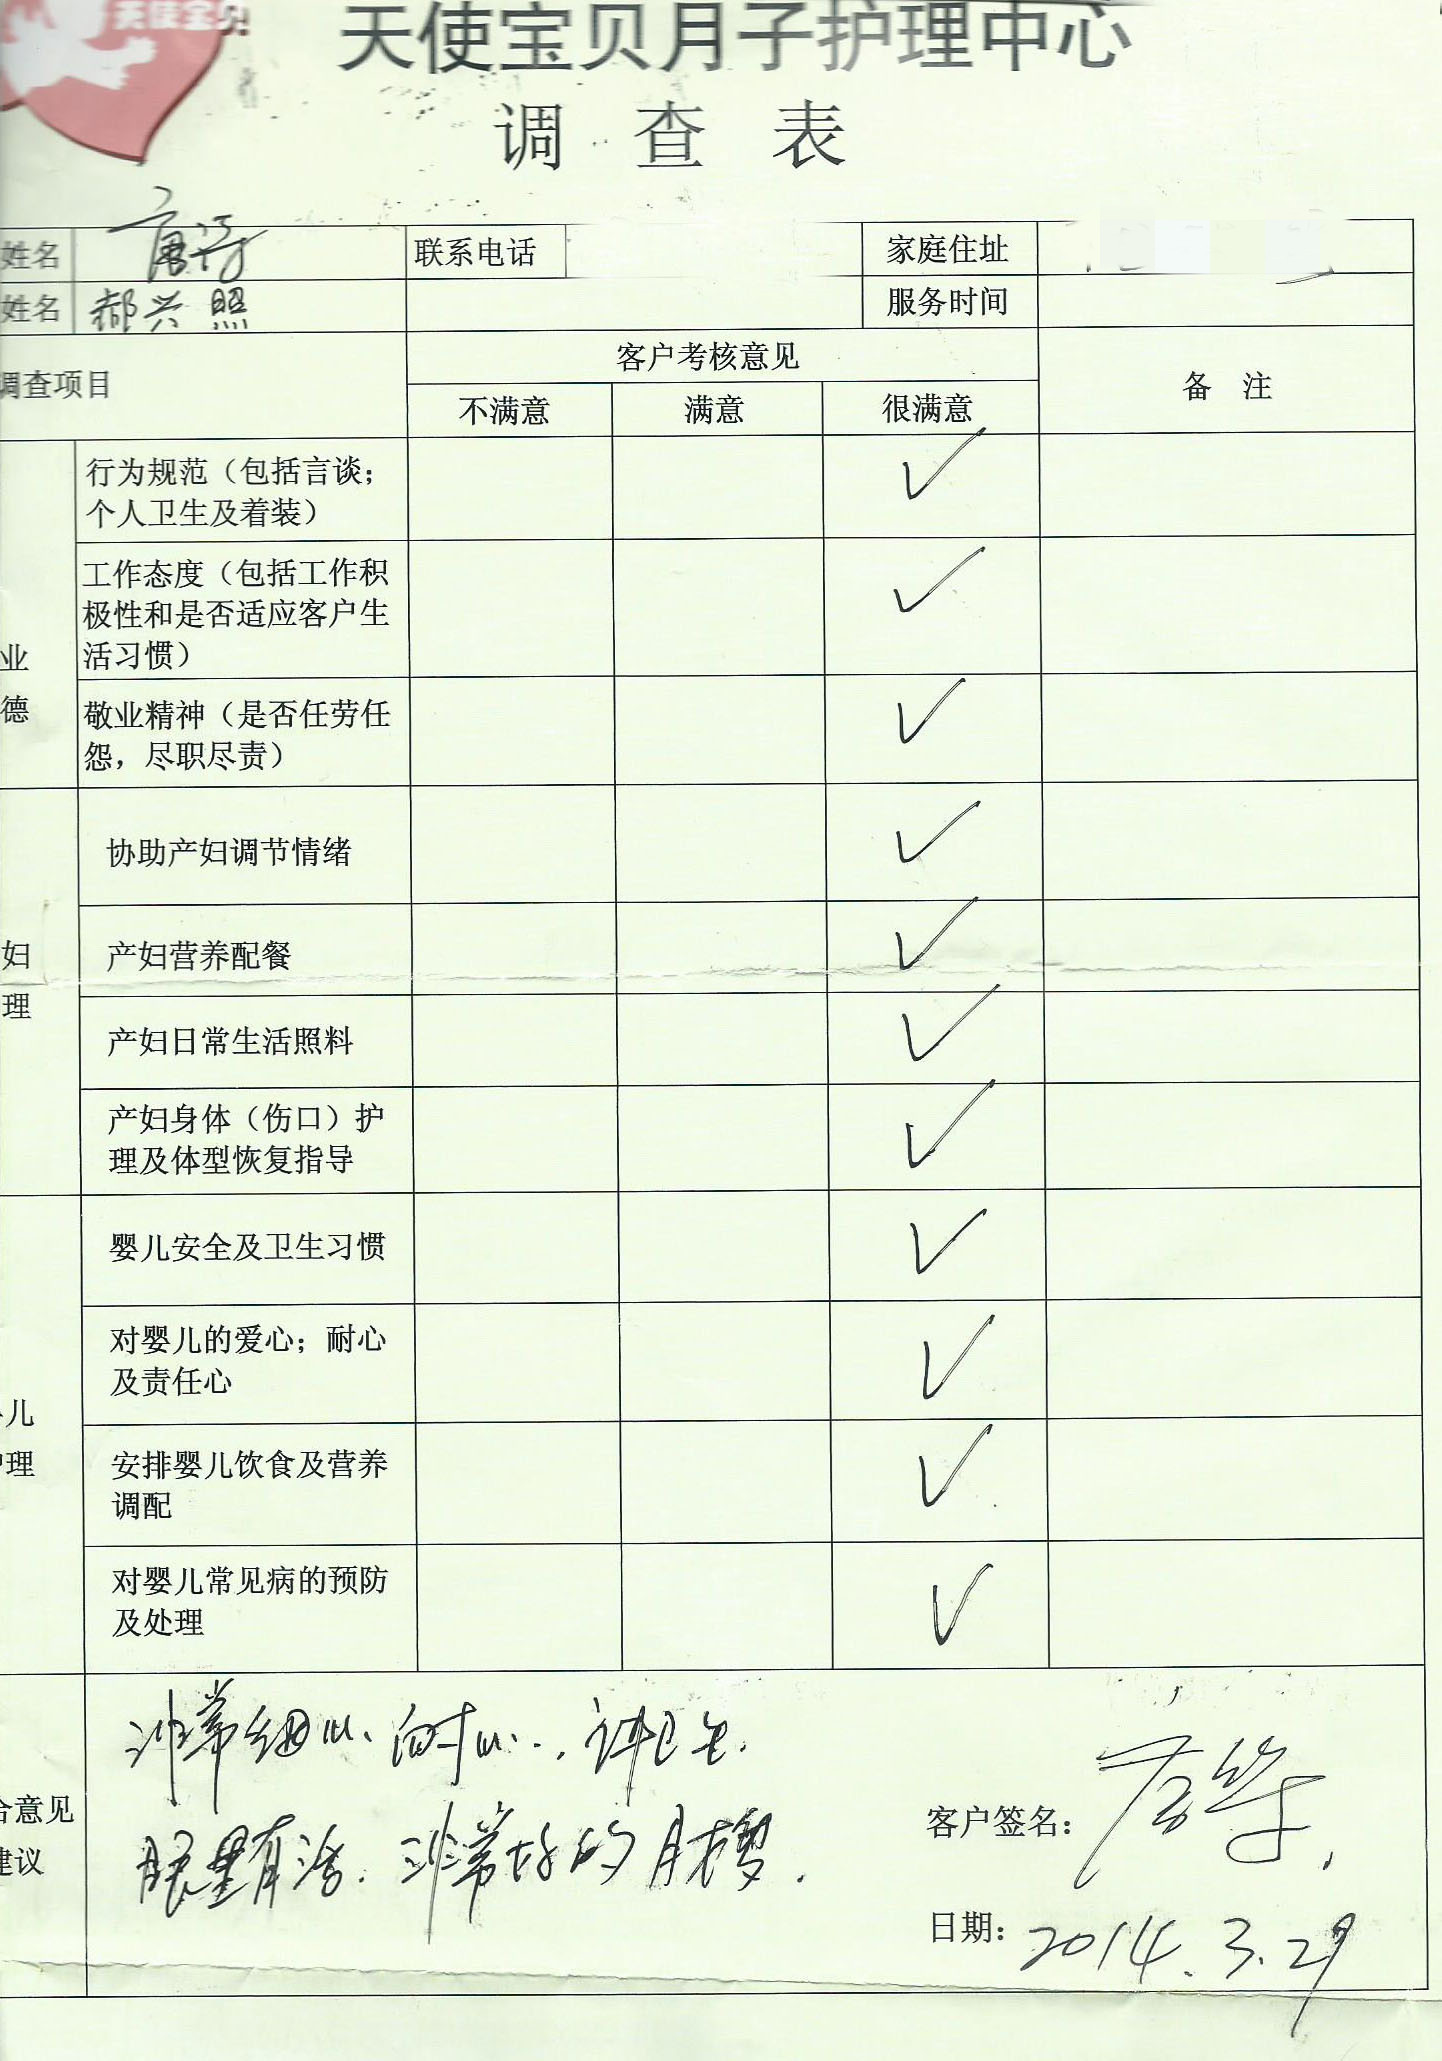 天使宝贝
天使宝贝月子护理中心
调查表
姓名 唐 联系电话 家庭住址
姓名 郝兴照 服务时间
调查项目 客户考核意见 备注
不满意 满意 很满意
业
德
行为规范（包括言谈；
个人卫生及着装） ✓
工作态度（包括工作积
极性和是否适应客户生
活习惯） ✓
敬业精神（是否任劳任
怨，尽职尽责） ✓
妇
理
协助产妇调节情绪 ✓
产妇营养配餐 ✓
产妇日常生活照料 ✓
产妇身体（伤口）护
理及体型恢复指导 ✓
儿
理
婴儿安全及卫生习惯 ✓
对婴儿的爱心；耐心
及责任心 ✓
安排婴儿饮食及营养
调配 ✓
对婴儿常见病的预防
及处理 ✓
合意见
建议
非常细心、耐心、讲卫生.
眼里有活. 非常好的月嫂.
客户签名：
日期：2014.3.29